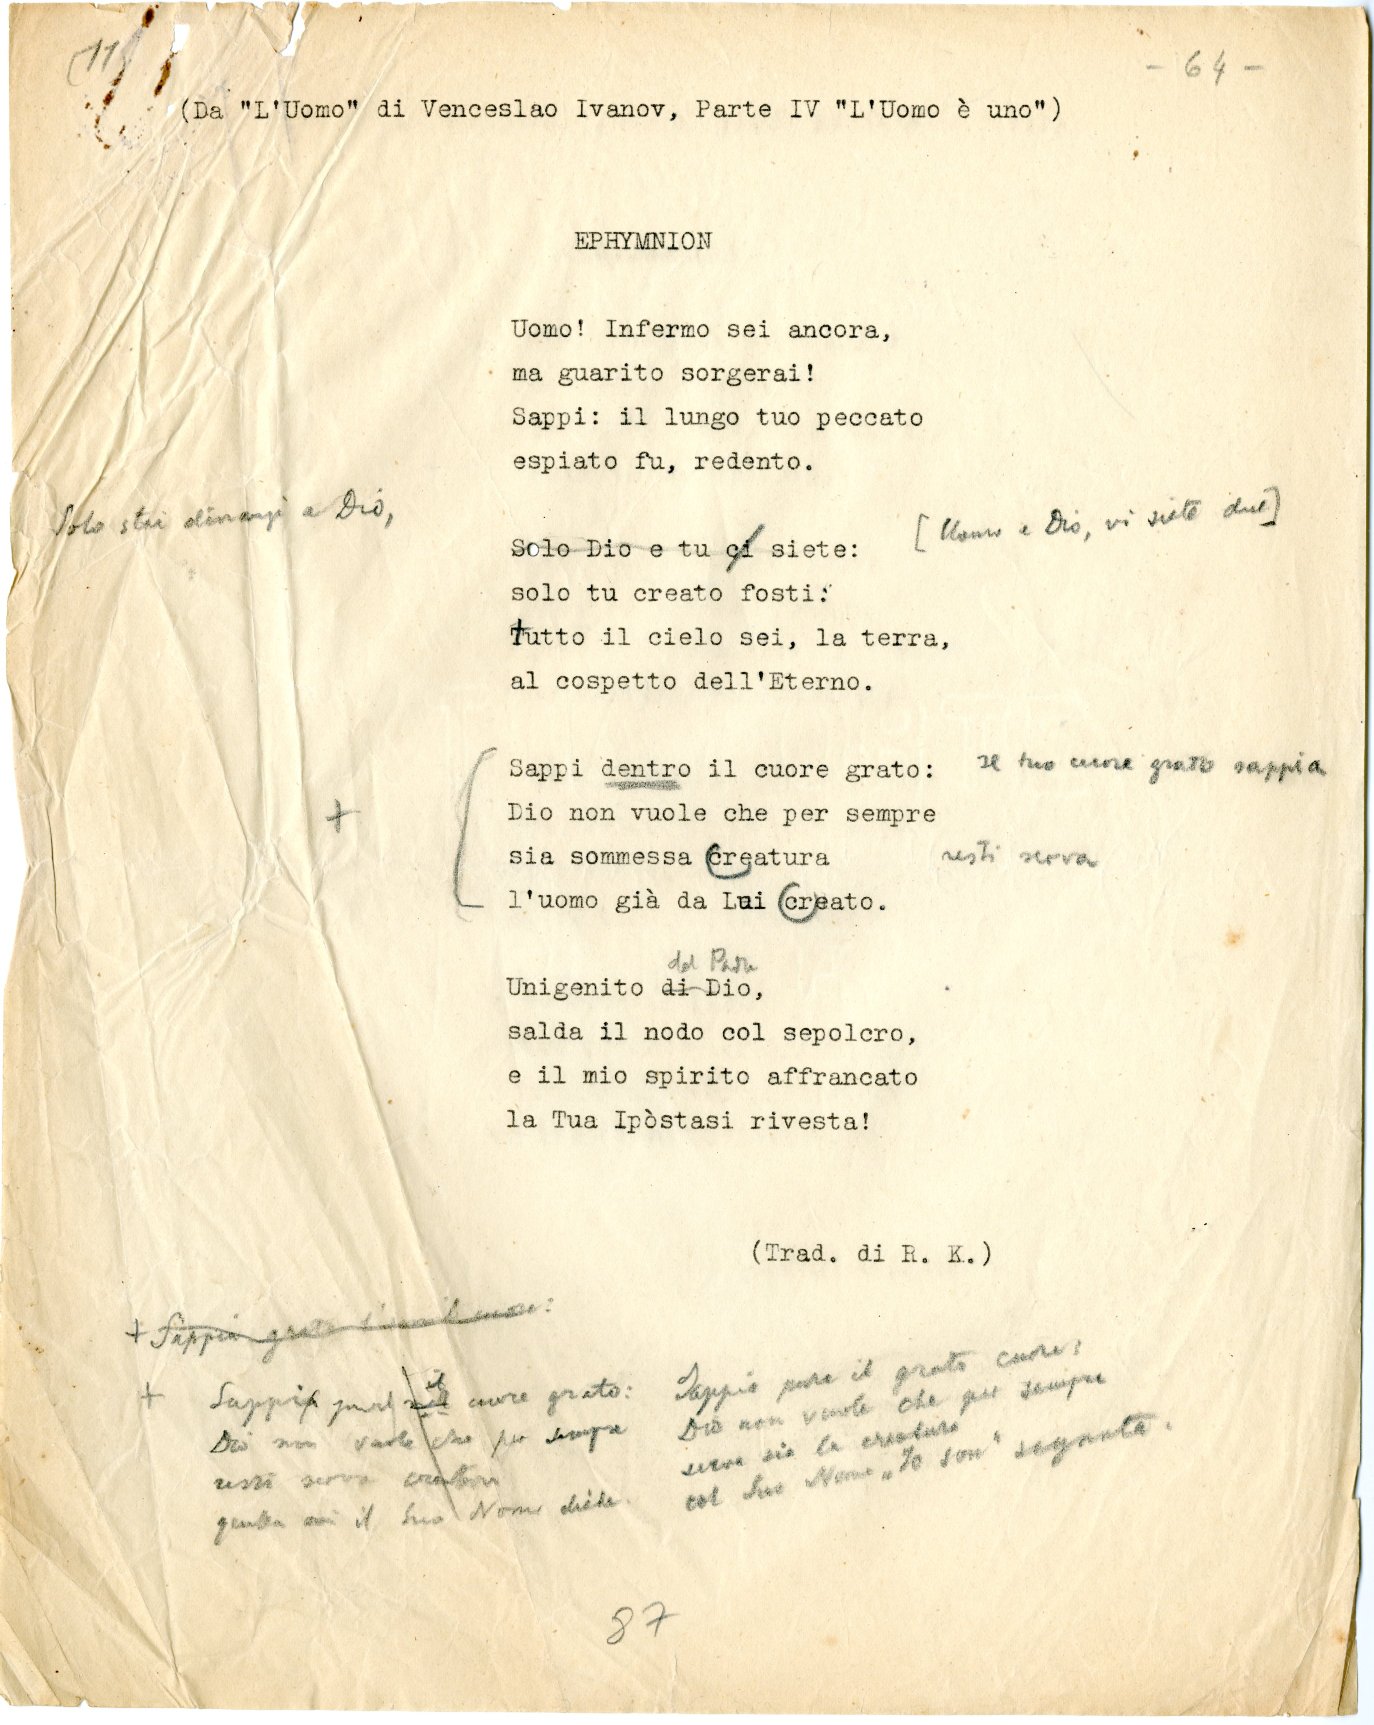 (11)
- 64 -
(Da "L'Uomo" di Venceslao Ivanov, Parte IV "L'Uomo è uno")
EPHYMNION
Uomo! Infermo sei ancora,
ma guarito sorgerai!
Sappi: il lungo tuo peccato
espiato fu, redento.
Solo stai dinanzi a Dio,
[Uomo e Dio, vi siete due]
Solo Dio e tu ci siete:
solo tu creato fosti:
tutto il cielo sei, la terra,
al cospetto dell'Eterno.
Sappi dentro il cuore grato: Il tuo cuore grato sappia
+
Dio non vuole che per sempre
sia sommessa creatura resti serva
l'uomo già da Lui creato.
del Padre
Unigenito di Dio,
salda il nodo col sepolcro,
e il mio spirito affrancato
la Tua Ipòstasi rivesta!
(Trad. di R. K.)
+ Sappia il cuore:
+ Sappia pure il cuore grato:
Dio non vuole che per sempre
resti serva creatura
quella cui il Suo Nome diede.
Sappia pure il grato cuore:
Dio non vuole che per sempre
serva sia la creatura
col Suo Nome „Io son" segnata.
87